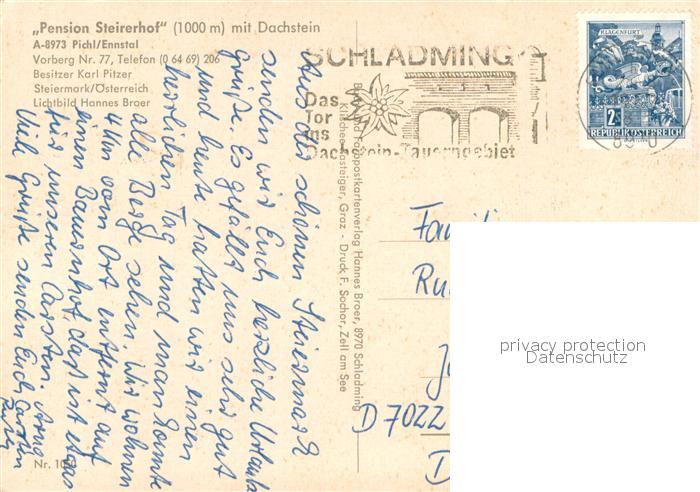 „Pension Steirerhof" (1000 m) mit Dachstein
A-8973 Pichl/Ennstal
Vorberg Nr. 77, Telefon (0 64 69) 206
Besitzer Karl Pitzer
Steiermark/Österreich
Lichtbild Hannes Broer
SCHLADMING
Das
Tor
ins
Dachstein-Tauerngebiet
KLAGENFURT
2
REPUBLIK ÖSTERREICH
Aus der schönen Steiermark
senden wir Euch herzliche Urlaubs
grüße. Es gefällt uns sehr gut
und heute hatten wir einen
herrlichen Tag und man konnte
alle Berge sehen. Wir wohnen
4 km vom Ort entfernt auf
einem Bauernhof, das ist etwas
für unseren Carsten.
Viele Grüße senden Euch Carsten
Farbpostkartenverlag Hannes Broer, 8970 Schladming
Graz - Druck F. Sochor, Zell am See
D 7022
Nr.
privacy protection
Datenschutz